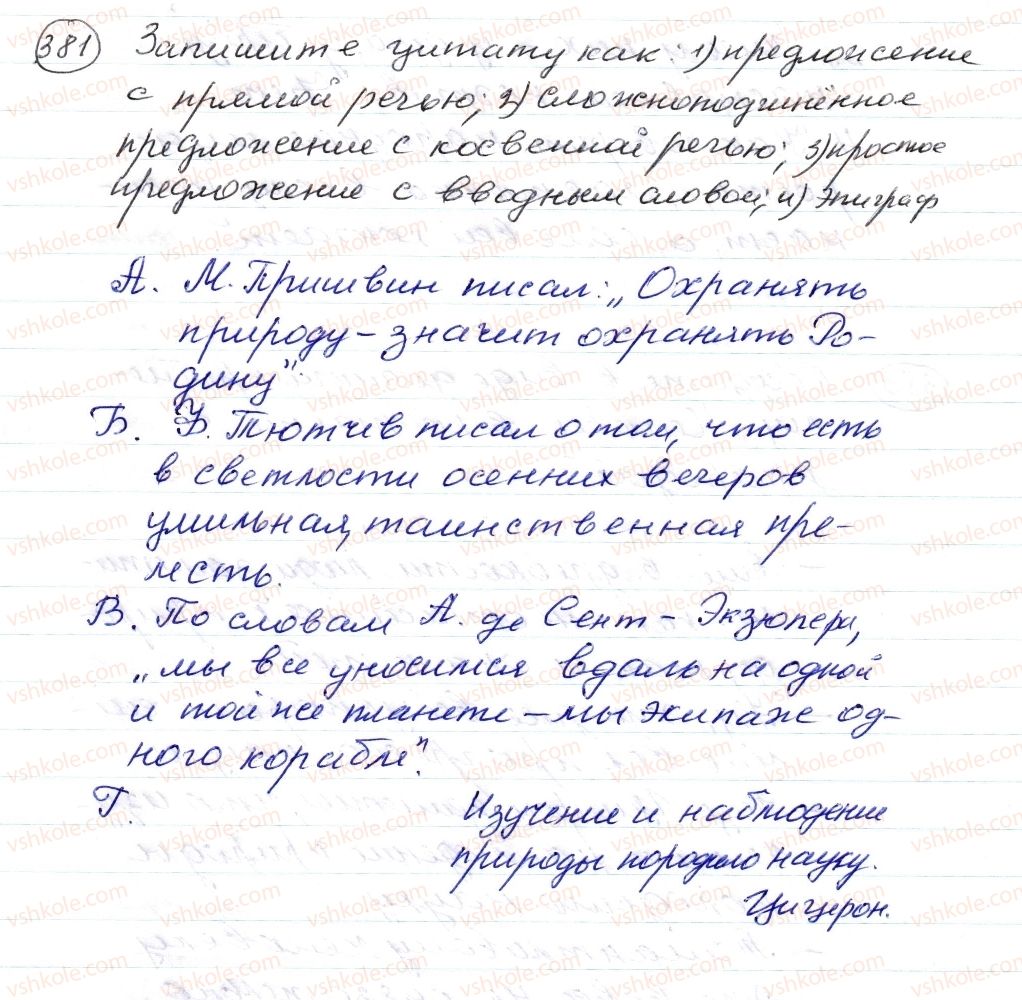 381 Запишите цитату как: 1) предложение
с прямой речью; 2) сложноподчинённое
предложение с косвенной речью; 3) простое
предложение с вводным словой; 4) эпиграф
А. М. Пришвин писал: „Охранять
природу – значит охранять Ро-
дину".
Б. Ф. Тютчев писал о том, что есть
в светлости осенних вечеров
умильная, таинственная пре-
лесть.
В. По словам А. де Сент-Экзюпери,
„мы все уносимся вдаль на одной
и той же планете – мы экипаж од-
ного корабля".
Г. Изучение и наблюдение
природы породило науку.
Цицерон.